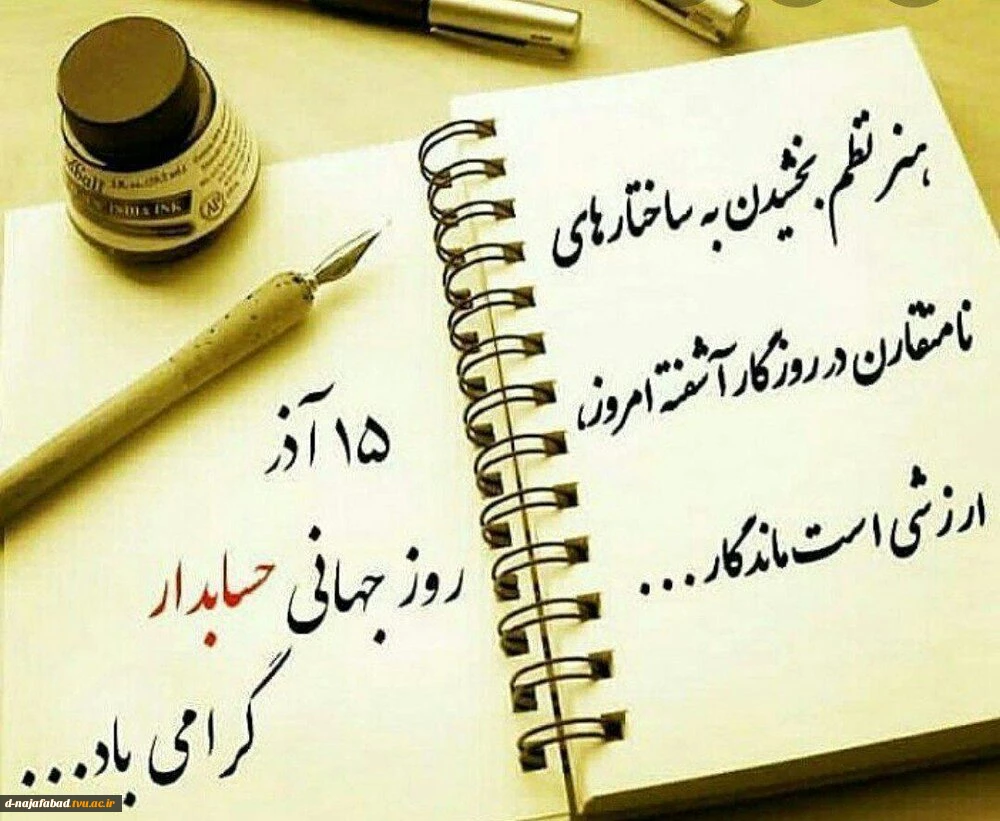 هنر نظم بخشیدن به ساختارهای
نامتقارن در روزگار آشفته امروز،
ارزشی است ماندگار...
۱۵ آذر
روز جهانی حسابدار
گرامی باد...
INDIA INK
d-najafabad.tvu.ac.ir